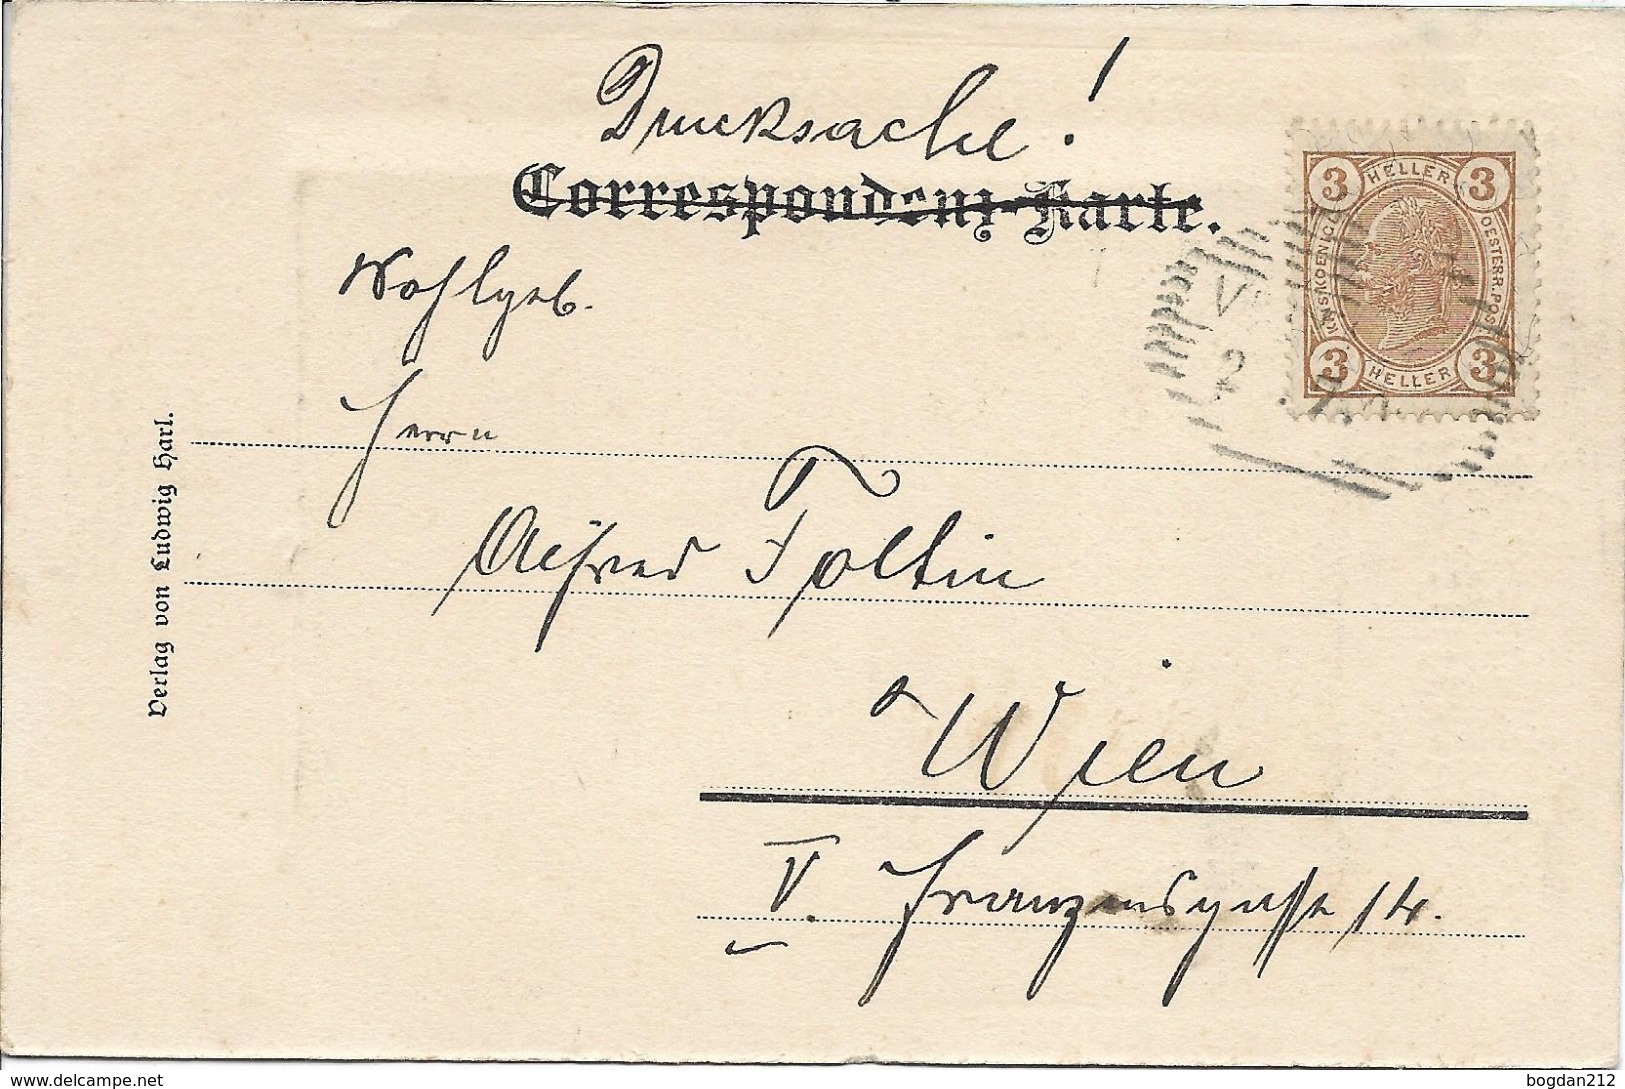 Drucksache!
Correspondenz-Karte.
3 HELLER 3
KAIS. KOENIGL. OESTERR. POST
3 HELLER 3
Wohlgeb.
Herrn
Alfred Foltin
Wien
V. Franzensgasse 14.
Verlag von Ludwig Harl.
delcampe.net
bogdan212